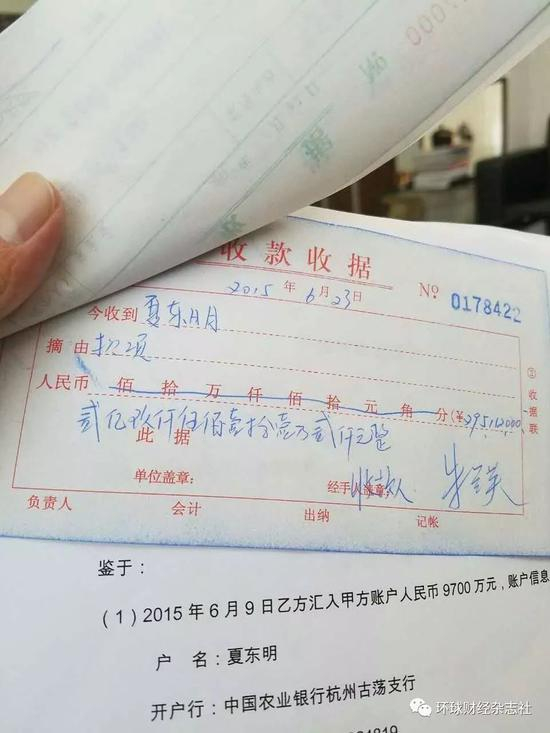 收款收据
2015 年 6 月 23 日 № 0178422
今收到 夏东明
摘 由 款项
人民币 佰 拾 万 仟 佰 拾 元 角 分（¥295112000
贰亿玖仟伍佰壹拾壹万贰仟元整
此 据
单位盖章： 经手人盖章： 收款人 朱
负责人 会计 出纳 记帐
② 收据联
鉴于：
（1）2015 年 6 月 9 日乙方汇入甲方账户人民币 9700 万元，账户信息
户 名：夏东明
开户行：中国农业银行杭州古荡支行
环球财经杂志社